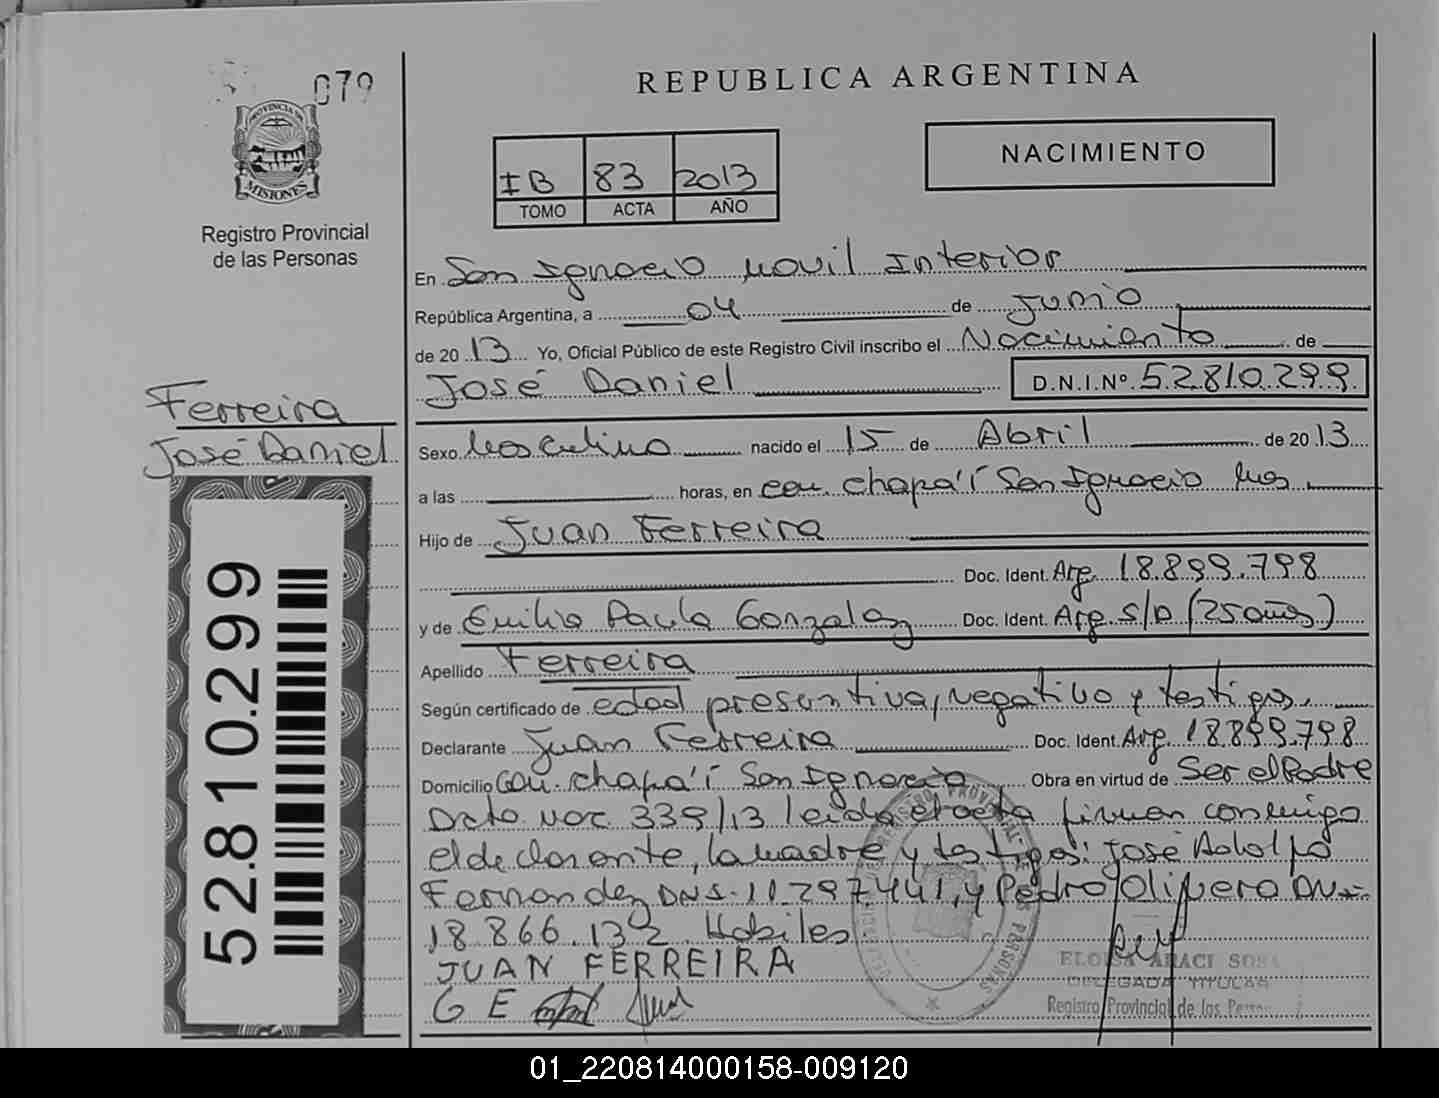 079
PROVINCIA DE
MISIONES
Registro Provincial
de las Personas
REPUBLICA ARGENTINA
IB 83 2013
TOMO ACTA AÑO
NACIMIENTO
En San Ignacio Movil Interior
República Argentina, a 04 de Junio
de 2013 Yo, Oficial Público de este Registro Civil inscribo el Nacimiento de
José Daniel D.N.I.Nº 52.810.299
Ferreira
José Daniel
Sexo Masculino nacido el 15 de Abril de 2013
a las horas, en com. chapa'í San Ignacio Mes
Hijo de Juan Ferreira
Doc. Ident. Arg. 18.899.798
y de Emilia Paula Gonzalez Doc. Ident. Arg. S/D (25 años)
Apellido Ferreira
Según certificado de edad presuntiva, negativo y testigos.
Declarante Juan Ferreira Doc. Ident. Arg. 18.899.798
Domicilio Com. chapa'í San Ignacio Obra en virtud de Ser el Padre
Dcto nac 339/13 leída el acta firman conmigo
el declarante, la madre y testigos: José Adolfo
Fernandez DNI. 11.297.441, y Pedro Olivera DNI.
18.866.132 Habiles
JUAN FERREIRA
G E
52.810.299
ELOISA ARACI SOSA
DELEGADA TITULAR
Registro Provincial de las Personas
01_220814000158-009120